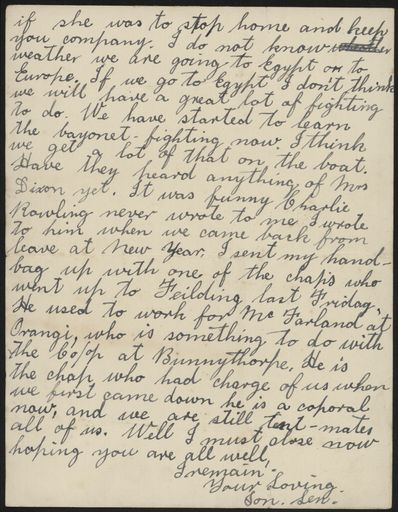 if she was to stop home and keep
you company. I do not know
weather we are going to Egypt or to
Europe. If we go to Egypt I don't think
we will have a great lot of fighting
to do. We have started to learn
the bayonet-fighting now. I think
we get a lot of that on the boat.
Have they heard anything of Mrs
Dixon yet. It was funny Charlie
Rowling never wrote to me I wrote
to him when we came back from
leave at New Year. I sent my hand-
bag up with one of the chaps who
went up to Feilding last Friday.
He used to work for Mc Farland at
Orangi, who is something to do with
the Co/op at Bunnythorpe. He is
the chap who had charge of us when
we first came down he is a coporal
now, and we are still tent-mates
all of us. Well I must close now
hoping you are all well,
I remain.
Your Loving.
Son. Len.